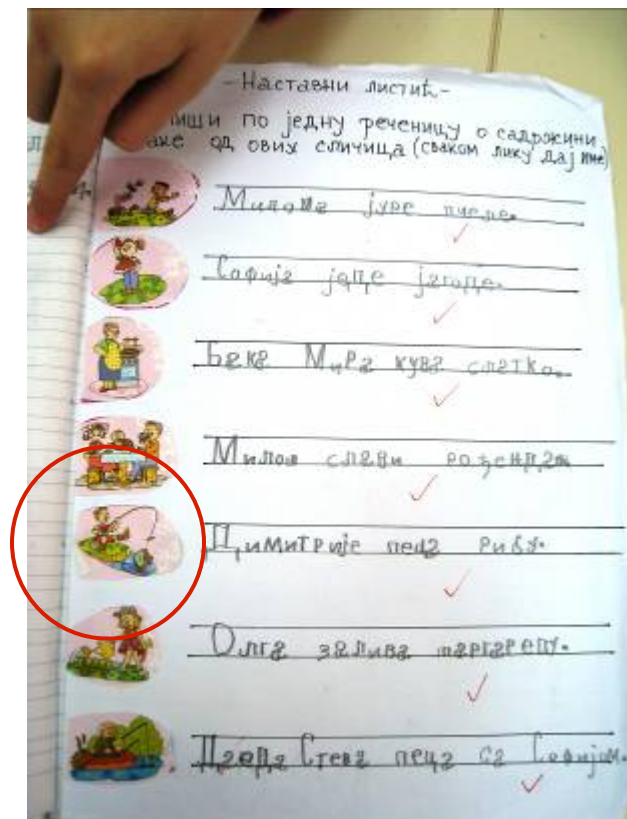 -Наставни листић-
пиши по једну реченицу о садржини
аке од ових сличица (сваком лику дај име)
јуре пчеле.
Софија једе јагоде.
Бака Мира кува слатко.
Милош слави рођендан
Димитрије пеца рибу.
Олга залива маргарету.
Деда Стева пеца са Софијом.